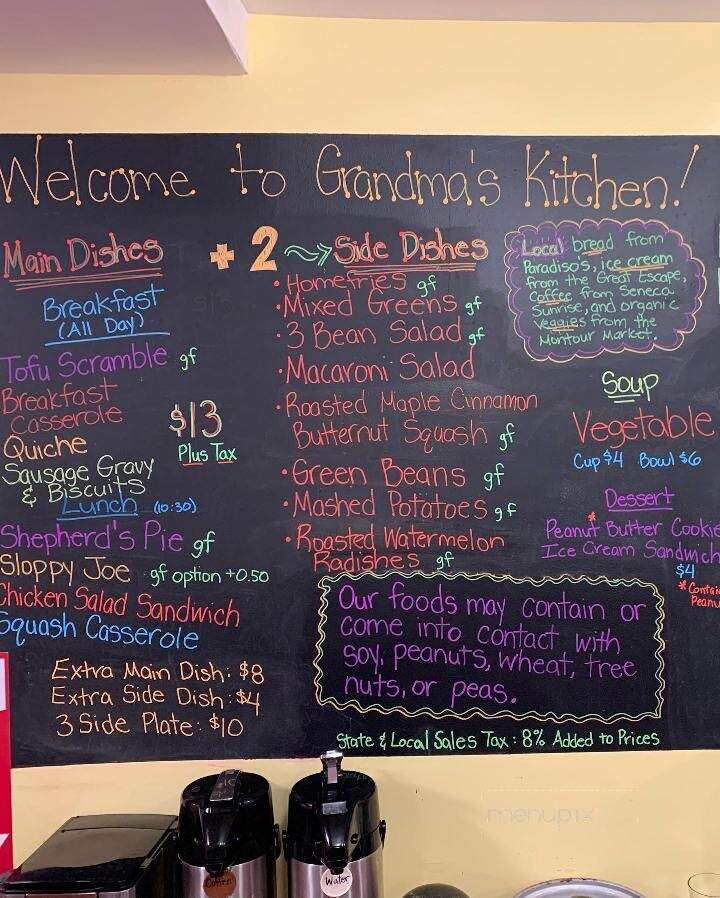 Welcome to Grandma's Kitchen!
Main Dishes + 2 Side Dishes
Breakfast
(All Day)
Tofu Scramble gf
Breakfast
Casserole
Quiche
Sausage Gravy
& Biscuits
$13
Plus Tax
Lunch (10:30)
Shepherd's Pie gf
Sloppy Joe gf option +0.50
Chicken Salad Sandwich
Squash Casserole
Extra Main Dish: $8
Extra Side Dish: $4
3 Side Plate: $10
• Homefries gf
• Mixed Greens gf
• 3 Bean Salad gf
• Macaroni Salad
• Roasted Maple Cinnamon
Butternut Squash gf
• Green Beans gf
• Mashed Potatoes gf
• Roasted Watermelon
Radishes gf
Local bread from
Paradiso's, ice cream
from the Great Escape,
Coffee from Seneca
Sunrise, and organic
veggies from the
Montour Market.
Soup
Vegetable
Cup $4 Bowl $6
Dessert
Peanut* Butter Cookie
Ice Cream Sandwich
$4
*Contai
Peanu
Our foods may contain or
come into contact with
soy, peanuts, wheat, tree
nuts, or peas.
State & Local Sales Tax: 8% Added to Prices
Coffee
Water
menupix